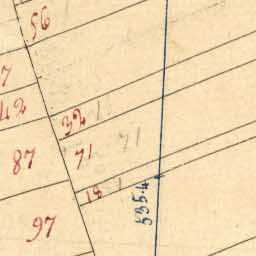 56
7
42
32
87
71
71
18
535.4
97